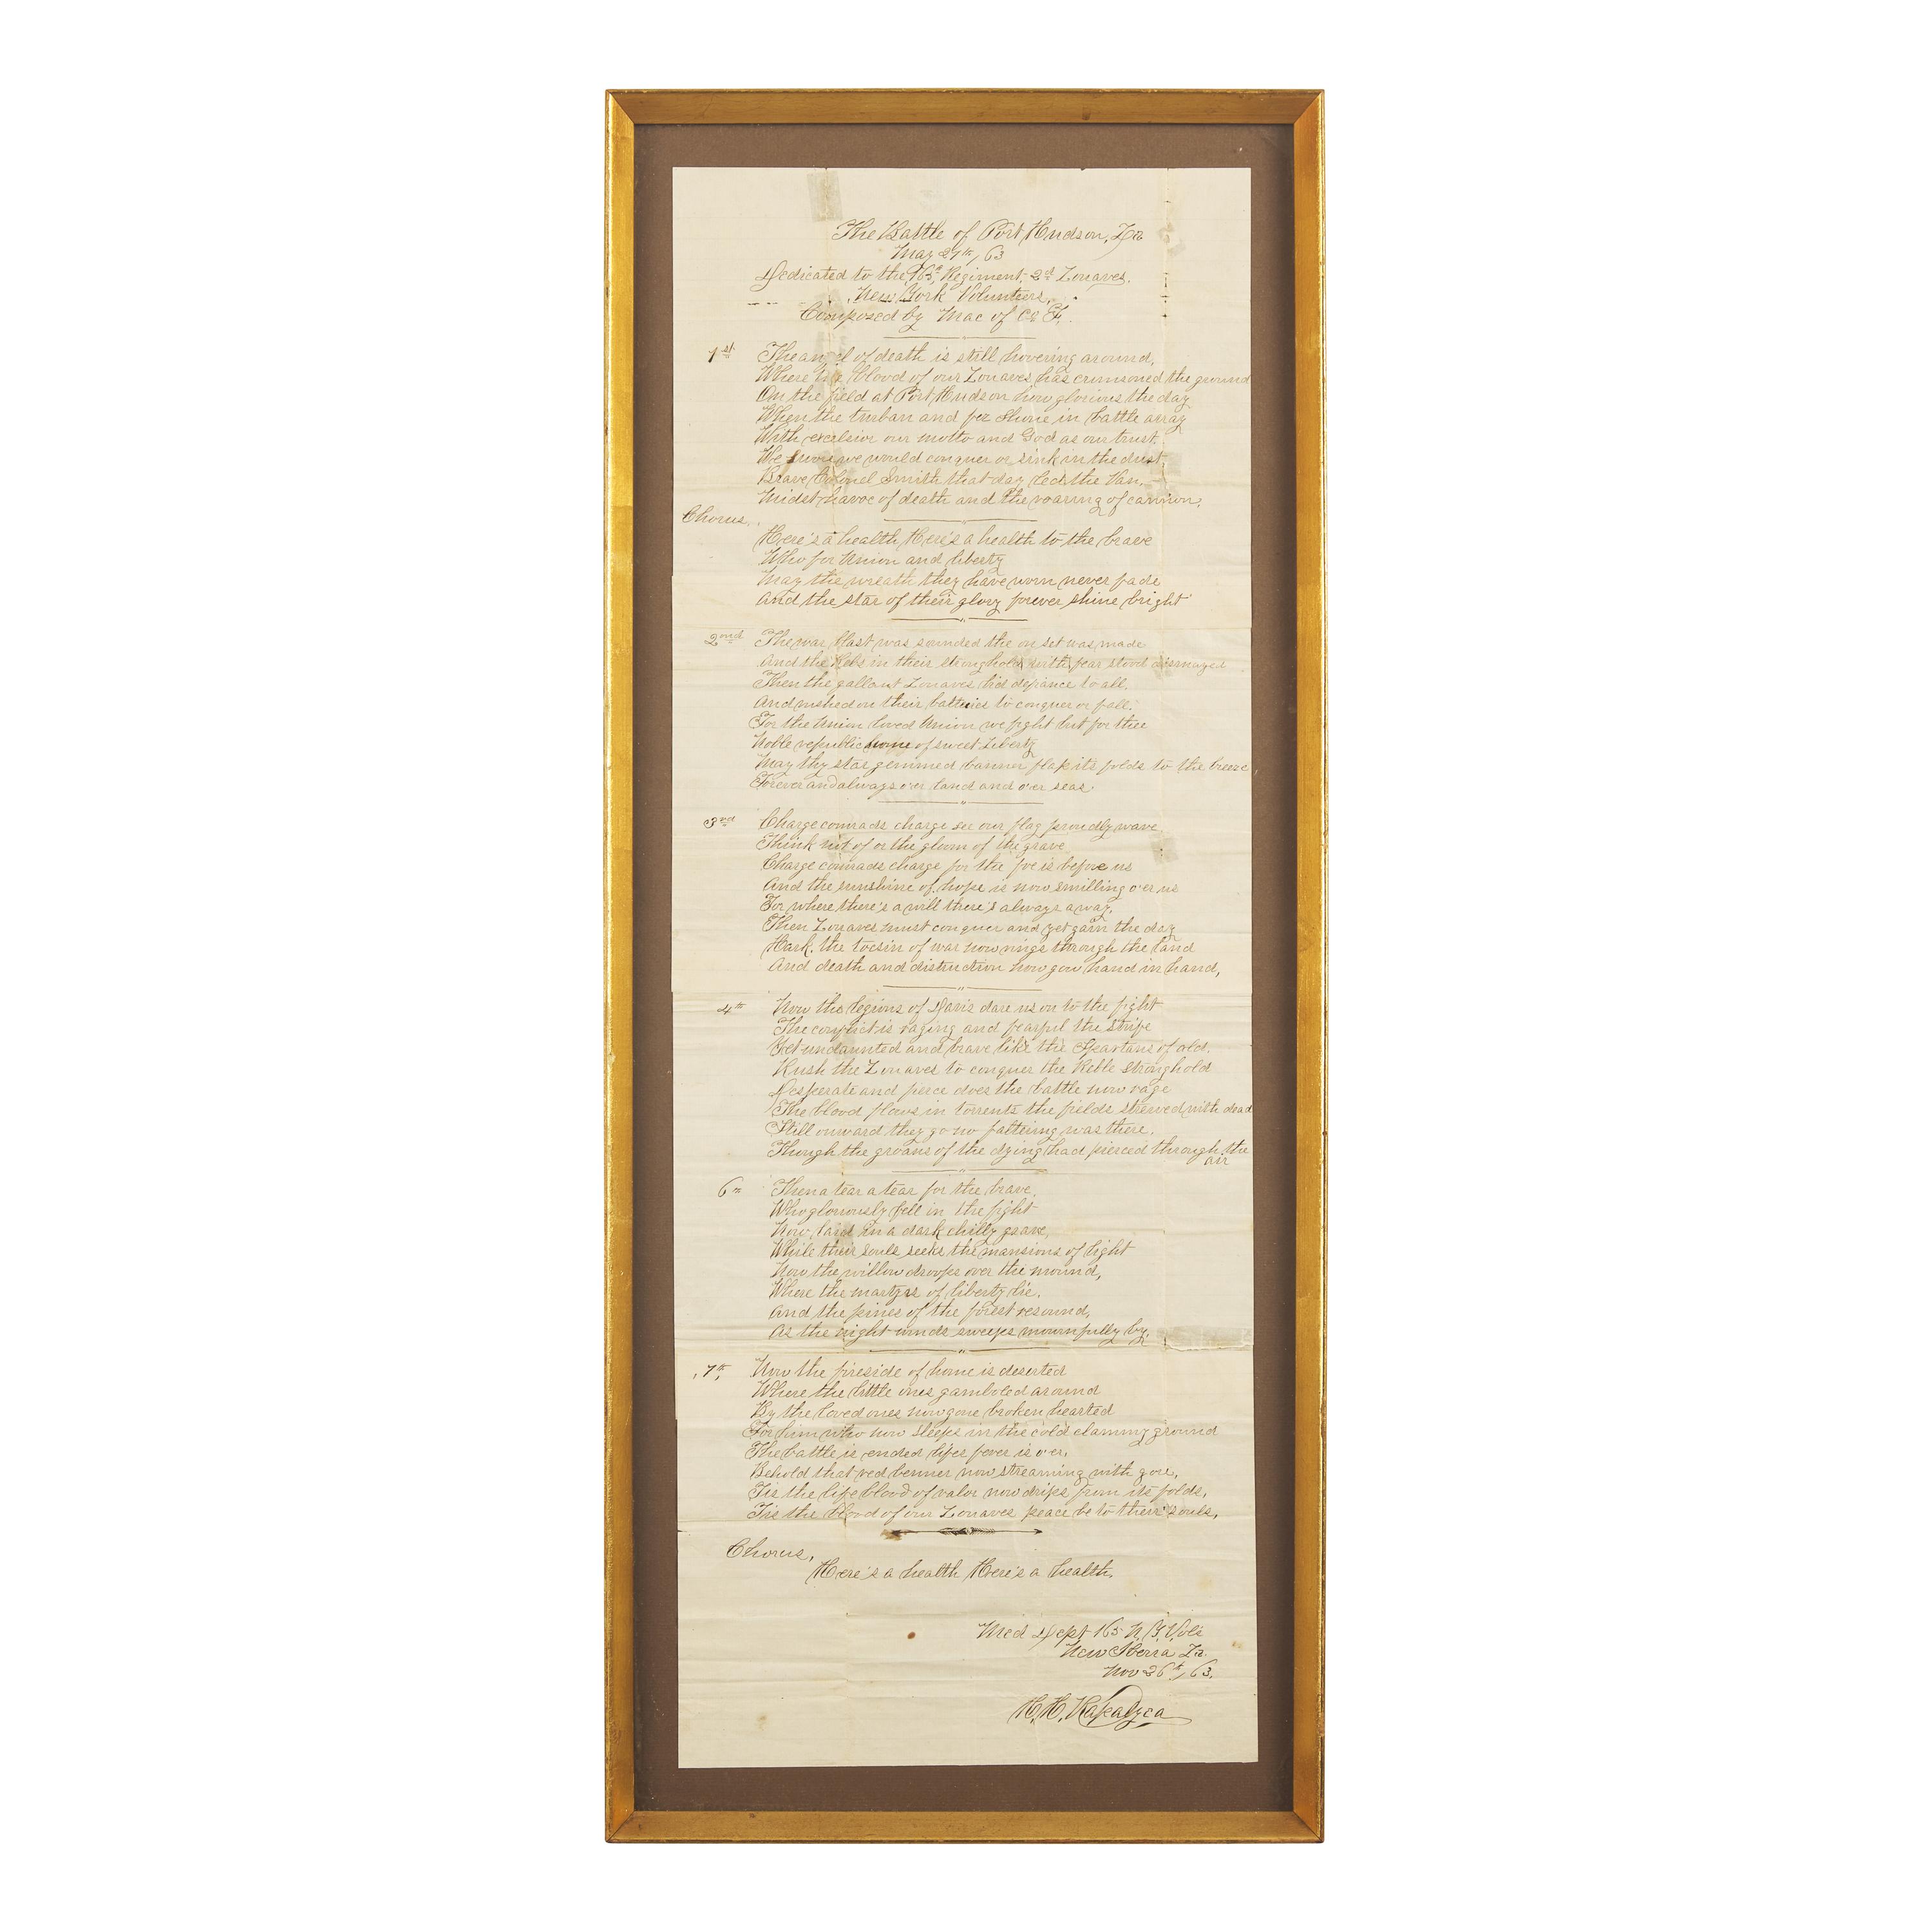 The Battle of Port Hudson, La
May 27th /63
Dedicated to the 165th Regiment 2nd Zouaves,
New York Volunteers,
Composed by Mac of Co F.
1st The angel of death is still hovering around,
Where the blood of our Zouaves has crimsoned the ground
On the field at Port Hudson how glorious the day
When the turban and fez shone in battle array
With excelsior our motto and God as our trust.
We swore we would conquer or sink in the dust,
Brave Colonel Smith that day led the Van,
Midst havoc of death and the roaring of cannon.
Chorus,
Here's a health Here's a health to the brave
Who for Union and liberty
May the wreath they have worn never fade
And the star of their glory forever shine bright
2nd The war blast was sounded the on set was made
And the Rebs in their stronghold with fear stood dismayed
Then the gallant Zouaves bid defiance to all,
And rushed on their batteries to conquer or fall.
For the Union loved Union we fight but for thee
Noble republic home of sweet Liberty
May thy star gemmed banner flap its folds to the breeze
Forever and always o'er land and o'er seas.
3rd Charge comrads charge see our flag proudly wave
Think not of or the gloom of the grave
Charge comrads charge for the foe is before us
And the sunshine of hope is now smilling o'er us
For where there's a will there's always a way,
Then Zouaves must conquer and yet gain the day
Hark, the tocsin of war now rings through the land
And death and distruction now gow hand in hand,
4th Now the legions of Davis dare us on to the fight
The conflict is raging and fearful the strife
Yet undaunted and brave like the Spartans of old,
Rush the Zouaves to conquer the Reble stronghold
Desperate and feirce does the battle now rage
The blood flows in torrents the fields strewed with dead
Still onward they go no faltering was there,
Though the groans of the dying had pierced through the
air
6th Then a tear a tear for the brave,
Who gloriously fell in the fight
Now laid in a dark chilly grave,
While their souls seeks the mansions of light
Now the willow droops over the mound,
Where the martyrs of liberty lie,
And the pines of the forest resound,
As the night winds sweeps mournfully by,
7th, Now the fireside of home is deserted
Where the little ones gamboled around
By the loved ones now gone broken hearted
For him who now sleeps in the cold clammy ground
The battle is ended lifes fever is o'er,
Behold that red benner now streaming with gore,
Tis the life blood of valor now drips from its folds,
Tis the blood of our Zouaves peace be to their souls,
Chorus,
Here's a health Here's a health,
Med Dept 165 N.Y. Vols
New Iberia La.
Nov 26th /63.
H. H.